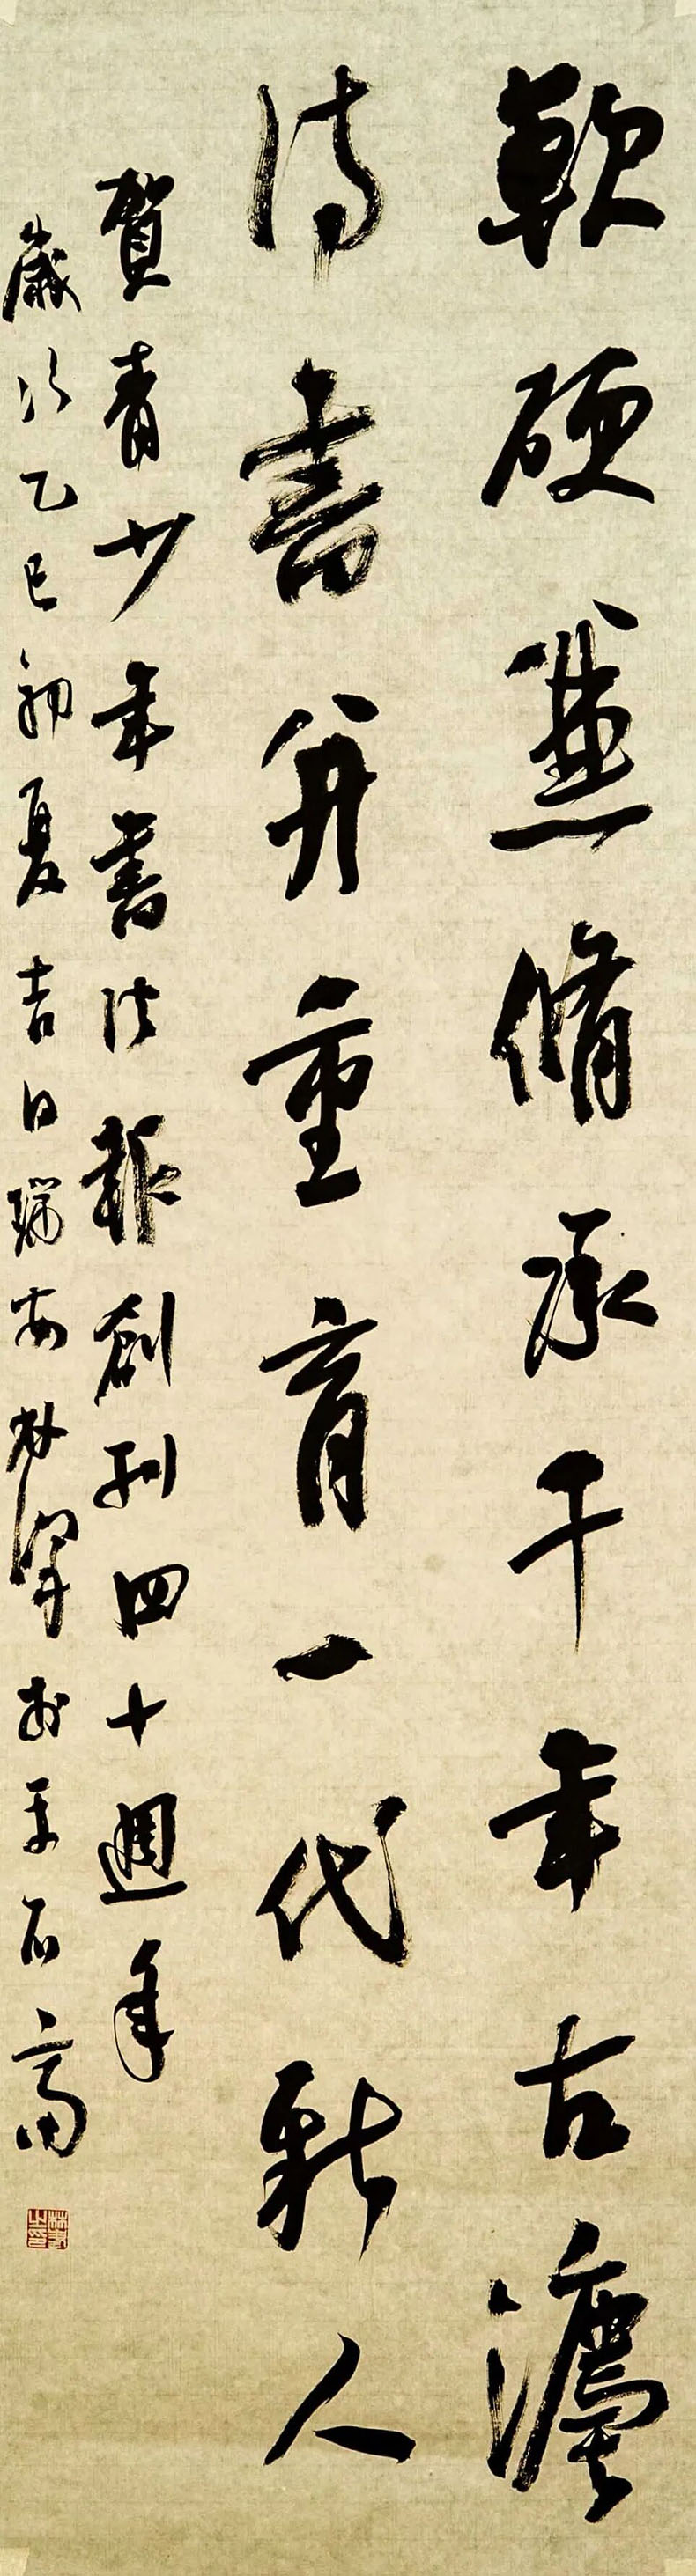 軟硬兼脩承千年古灋
詩書並重育一代新人
賀青少年書法報創刊四十週年
歲次乙巳初夏吉日瑞安林  於平石齋